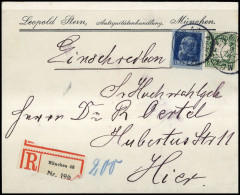 Leopold Stern, Antiquitätenhandlung, München.
Einschreiben
Sr Hochwohlgeb
Herrn Dr. R. Oertel
Hubertusstr 11
Hier
R
München 46
Nr. 198
200